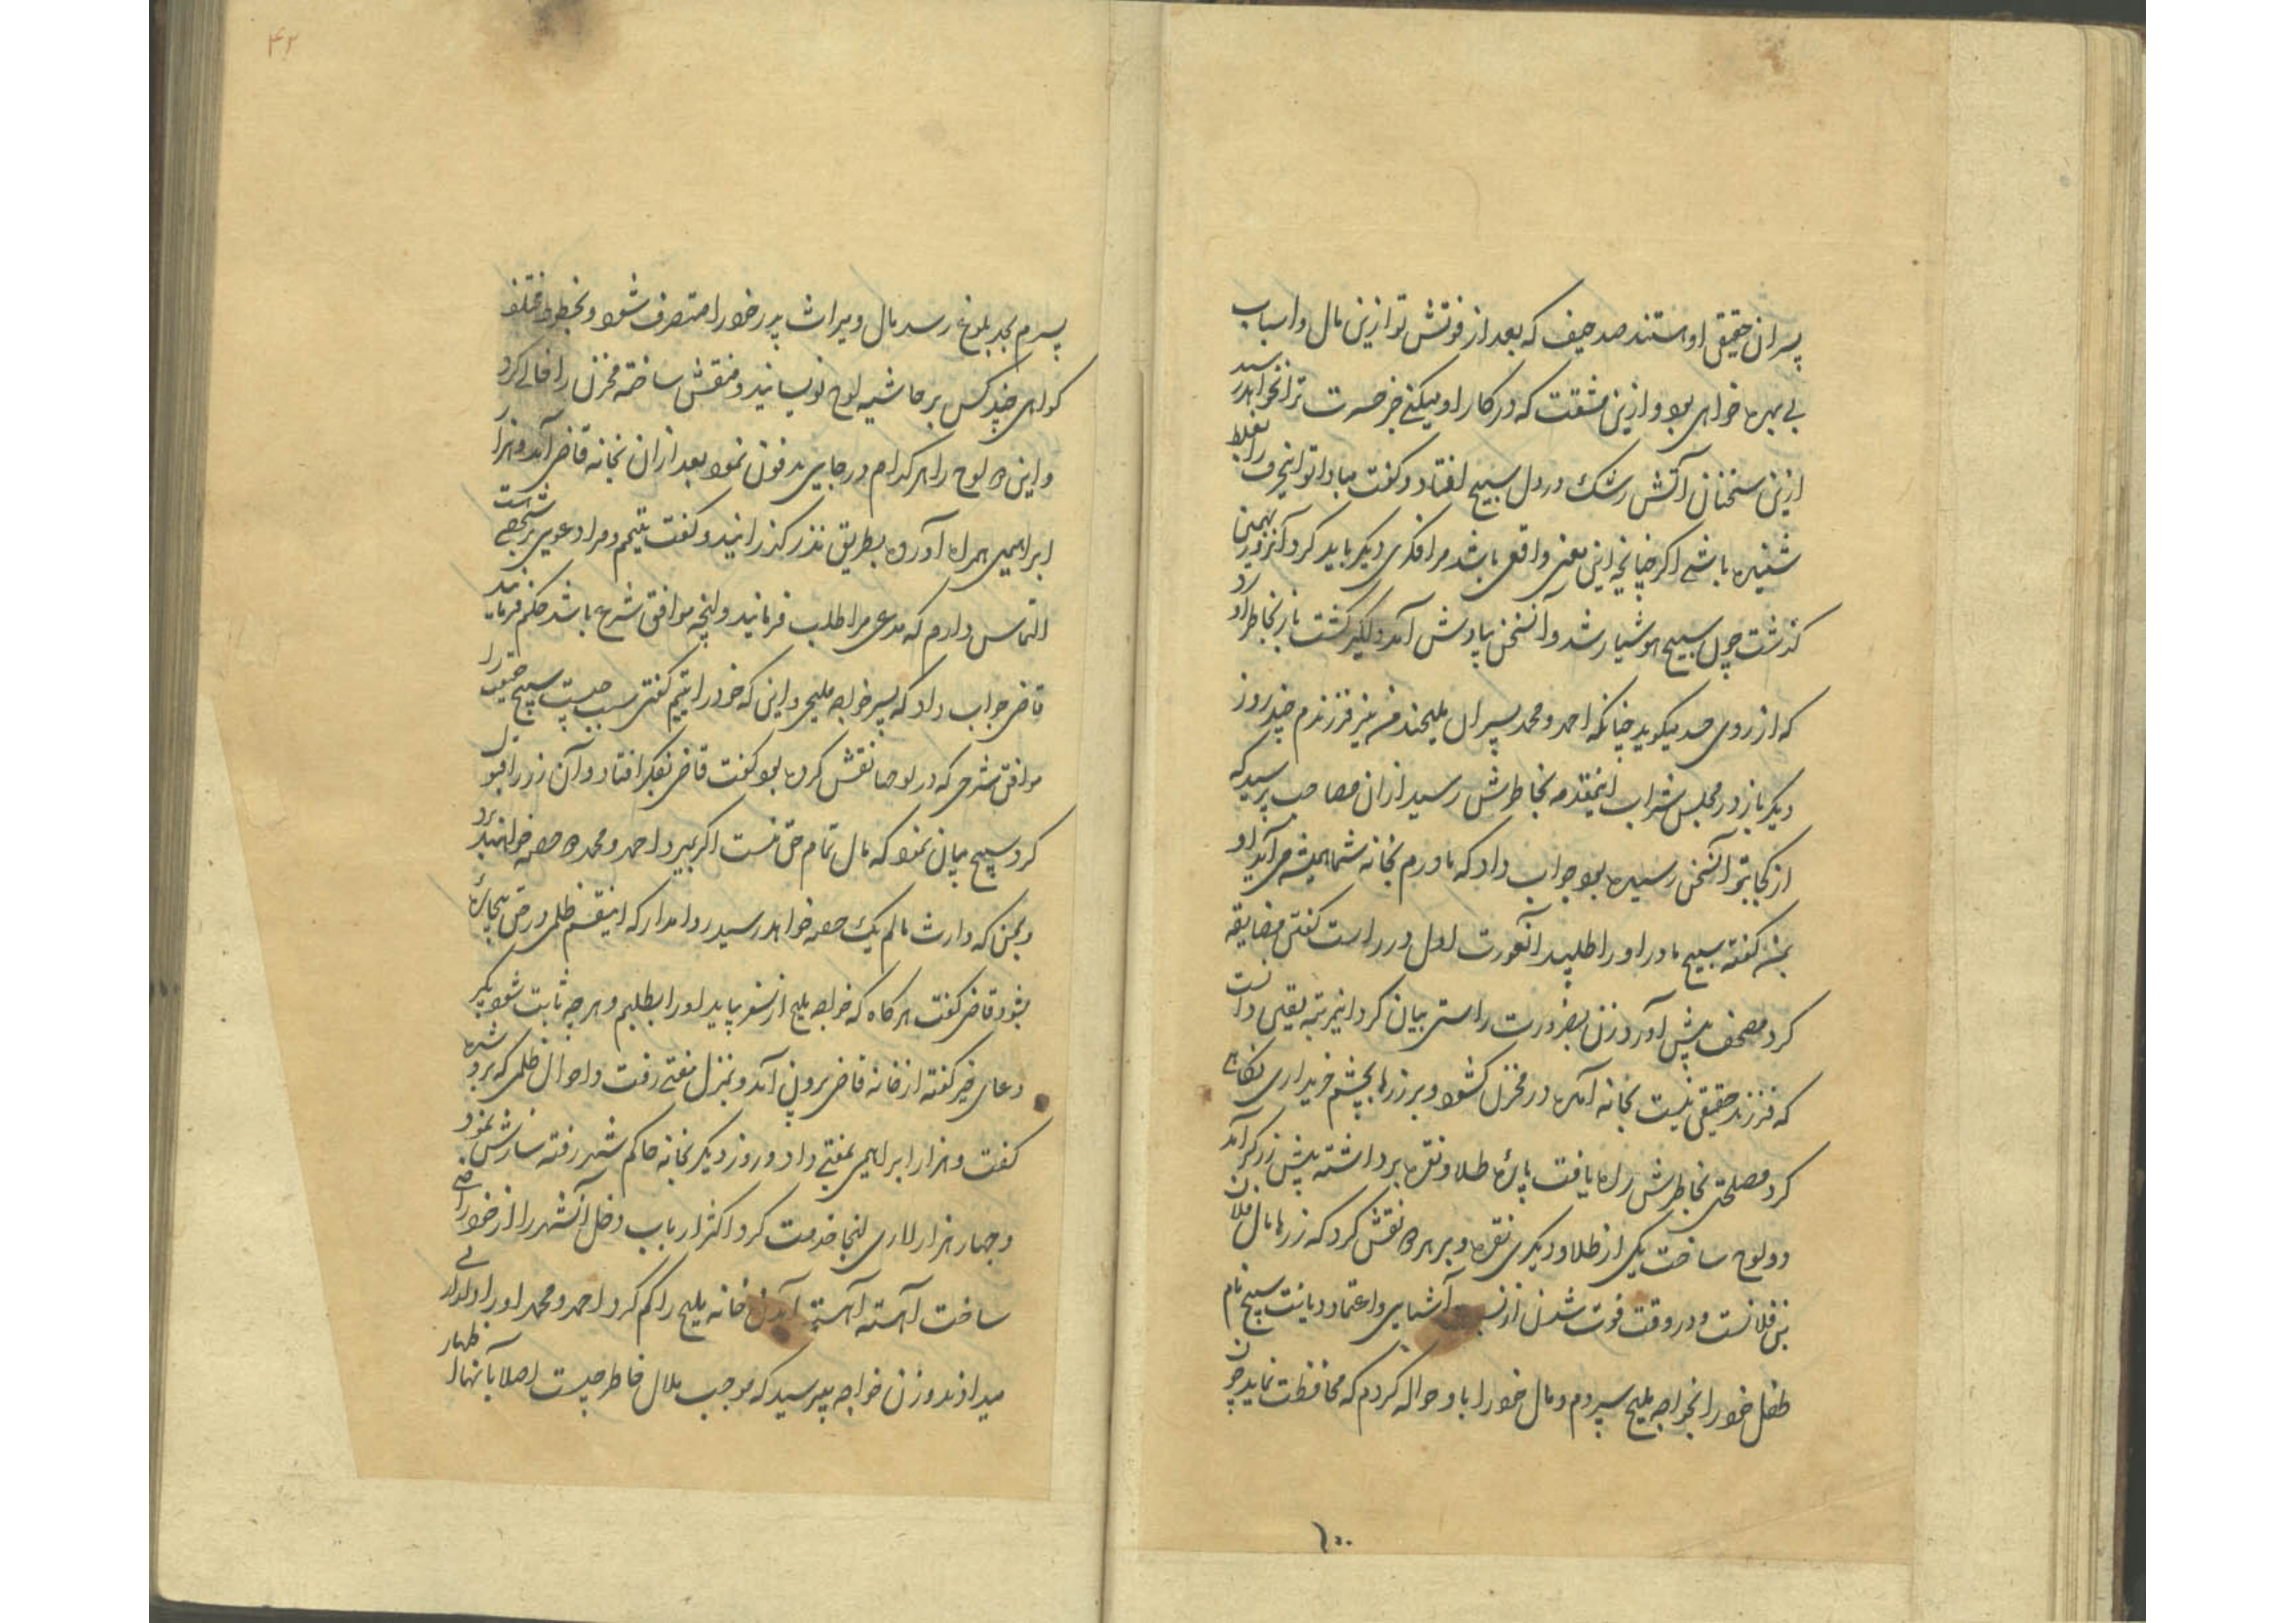 پسران حقیقی او هستند صد حیف که بعد از فوتش تو ازین مال و اسباب
بی بهره خواهی بود و ازین مشقت که در کار او میکنی جز حسرت ترا نخواهد رسید
ازین سخنان آتش رشک در دل سبیح افتاد و گفت مبادا تو این حرف را بغلط
شنیده باشی اگر چنانچه این معنی واقع باشد مرا فکری دیگر باید کرد آنروز بهمین
گذشت چون سبیح هوشیار شد و آنسخن بیادش آمد دلگیر گشت باز بخاطر آورد
که از روی حسد میگوید چنانکه احمد و محمد پسران ملیحند من نیز فرزندم چند روز
دیگر باز در مجلس شراب اینمقدمه بخاطرش رسید ازان مصاحب پرسید که
از کجا بتو آنسخن رسیده بود جواب داد که مادرم بخانه شما همیشه می آید او
بمن گفته سبیح مادر او را طلبید آنعورت اول در راست گفتن مضایقه
کرد مصحف پیش آورد زن بضرورت راستی بیان کرد اینمرتبه یقین دانست
که فرزند حقیقی نیست بخانه آمده در مخزن کشود و بر زرها بچشم خریداری نگاهی
کرد مصلحتی بخاطرش راه یافت پارهٔ طلا و نقره برداشته پیش زرگر آمد
دو لوح ساخت یکی از طلا و دیگری نقره و بر هر دو نقش کرد که زرها مال فلان
بن فلانست و در وقت فوت شدن از آشنایی و اعتماد و دیانت سبیح نام
طفل خود را بخواجه ملیح سپردم و مال خود را باو حواله کردم که محافظت نماید چون
۴۲
پسرم بحد بلوغ رسد مال و میراث پدر خود را متصرف شود و بخطوط مختلف
گواهی چند کس بر حاشیه لوح نویسانید و منقش ساخته مخزن را خالی کرد
و این دو لوح را هر کدام در جایی مدفون نمود بعد ازان بخانه قاضی آمد و هزار
ابراهیمی همراه آورده بطریق نذر گذرانید و گفت یتیمم و مرا دعوی بر شخصی است
التماس دارم که مدعی مرا طلب فرمانید و انچه موافق شرع باشد حکم فرمایند
قاضی جواب داد که پسر خواجه ملیحی و این که خود را یتیم گفتی سبب چیست سبیح حقیقت را
موافق شرحی که در لوحها نقش کرده بود گفت قاضی بفکر افتاد و آن زر را قبول
کرد سبیح بیان نمود که مال تمام حق منست اگر بمیرد احمد و محمد دو حصه خواهند برد
و بمن که وارث مالم یک حصه خواهد رسید روا مدار که اینقسم ظلمی در حق بیچارهٔ
بشود قاضی گفت هر گاه که خواجه ملیح از سفر بیاید او را بطلبم و هر چه ثابت شود بگیر
دعای خیر گفته از خانه قاضی برون آمد و بمنزل مفتی رفت و احوال ظلمی که برو شده
گفت و هزار ابراهیمی بمفتی داد و روز دیگر بخانه حاکم شهر رفته سازش نمود
و چهار هزار لاری انجا خدمت کرد اکثر ارباب دخل آنشهر را از خود راضی
ساخت آهسته آهسته آمدن خانه ملیح را کم کرد احمد و محمد او را
میدادند و زن خواجه میپرسید که موجب ملال خاطر چیست اصلا بآنها اظهار